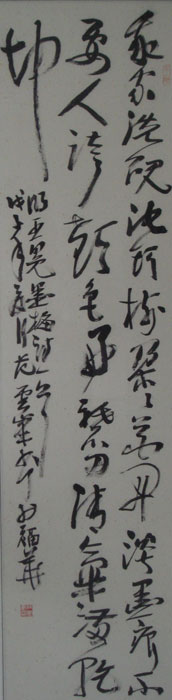 我家洗硯池頭樹朵々花開淡墨痕不
要人誇顏色好只留清氣滿乾
坤
明王冕墨梅詩一首
戊子年 福華